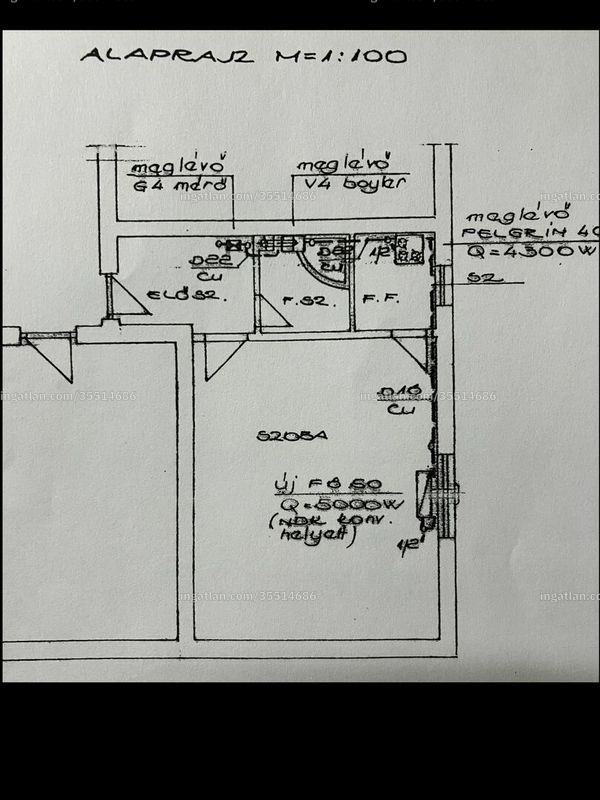 ALAPRAJZ M=1:100
meglévő
G4 mérő
meglévő
V4 boyler
meglévő
PELGRIN 40
Q=4300W
SZ
D22
Cu
1/2"
ELŐSZ.
F.SZ.
F.F.
D18
Cu
SZOBA
új FÉG 50
Q=5000W
(NDK konv.
helyett)
1/2"
ingatlan.com/35514686
ingatlan.com/35514686
ingatlan.com/35514686
ingatlan.com/35514686